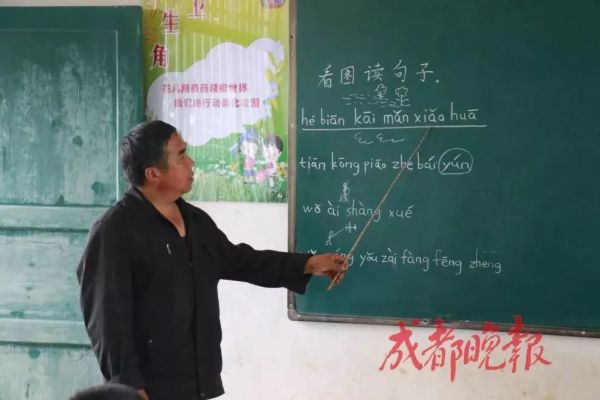 卫
生
角
我们用行动美化校园
看图读句子.
hé biān kāi mǎn xiǎo huā
tiān kōng piāo zhe bái yún
wǒ ài shàng xué
yǒu zài fàng fēng zheng
成都晚报